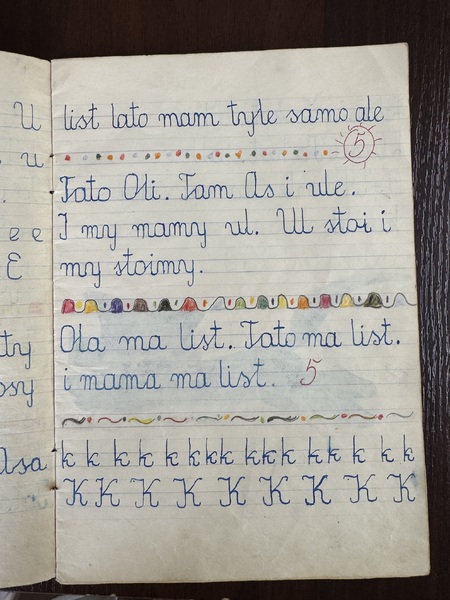 U
u
e e
E
ty
osy
Asa
list lato mam tyle samo ale
5
Tato Oli. Tam As i ule.
I my mamy ul. Ul stoi i
my stoimy.
Ola ma list. Tato ma list.
i mama ma list. 5
k k k k k kkk kkk kk k k k
KK K K K K K K K